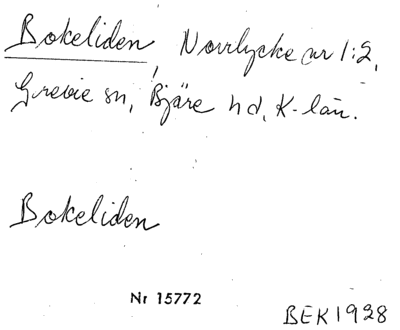 Bokeliden, Norrlycke nr 1:2,
Grevie sn, Bjäre hd, K-län.
Bokeliden
Nr 15772
BEK 1928